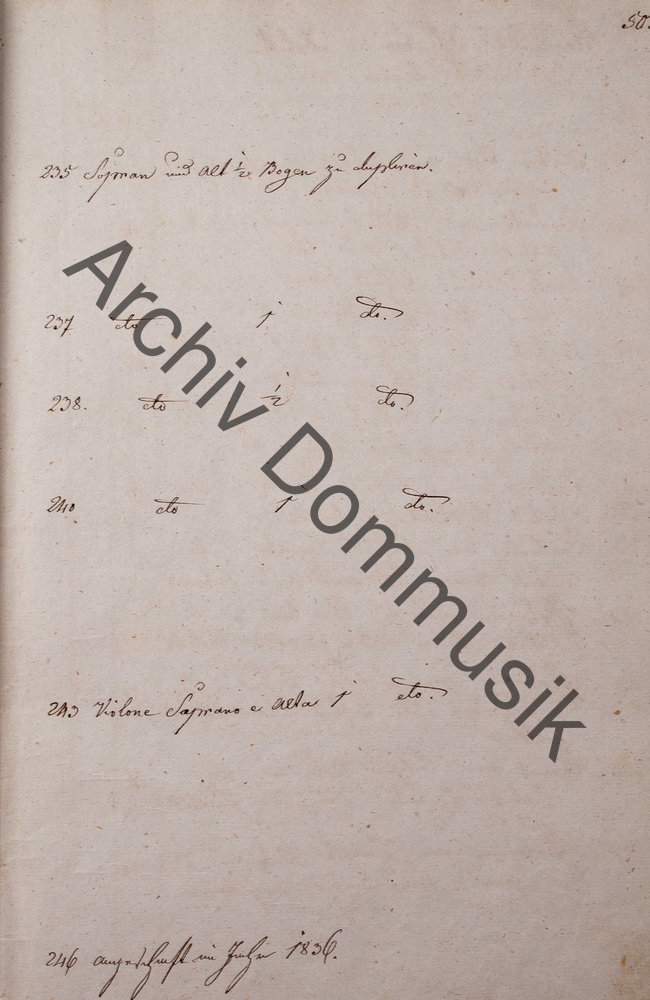 50.
235 Sopran und Alt 1/2 Bogen zu dupliren.
237 dto 1 do.
238. dto 1/2 do.
240 dto 1 do.
243 Violone Soprano e Alto 1 dto.
246 angeschafft im Jahr 1836.
Archiv Dommusik